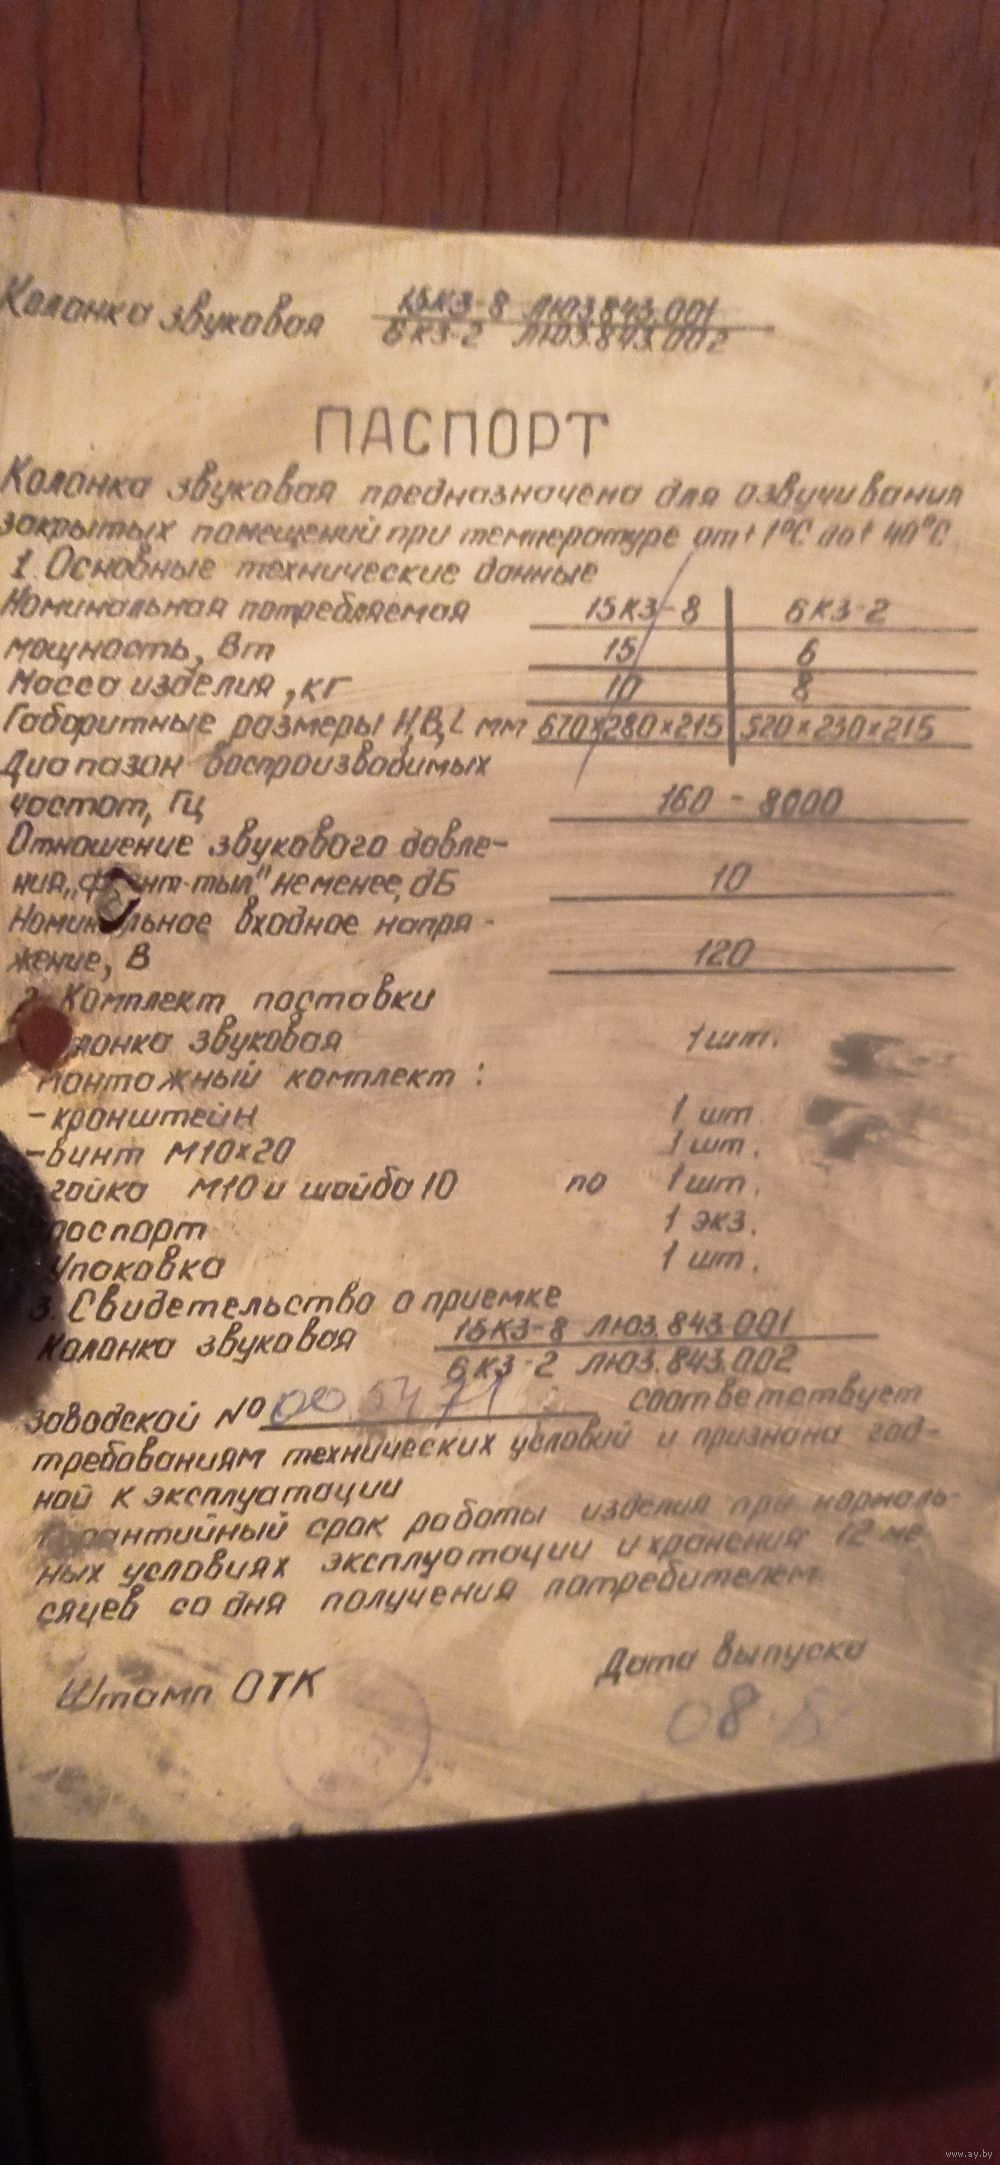 Колонка звуковая 15КЗ-8 ЛЮ3.843.001
6КЗ-2 ЛЮ3.843.002
ПАСПОРТ
Колонка звуковая предназначена для озвучивания
закрытых помещений при температуре от+1°С до+40°С
1. Основные технические данные
Номинальная потребляемая 15КЗ-8 6КЗ-2
мощность, Вт 15 6
Масса изделия, кг 10 8
Габаритные размеры Н,В,L мм 670×280×215 520×230×215
Диапазон воспроизводимых
частот, Гц 160 - 8000
Отношение звукового давле-
ния „фронт-тыл" не менее, дБ 10
Номинальное входное напря-
жение, В 120
2. Комплект поставки
Колонка звуковая 1 шт.
Монтажный комплект:
- кронштейн 1 шт.
- винт М10×20 1 шт.
гайка М10 и шайба 10 по 1 шт.
паспорт 1 экз.
Упаковка 1 шт.
3. Свидетельство о приемке
Колонка звуковая 15КЗ-8 ЛЮ3.843.001
6КЗ-2 ЛЮ3.843.002
заводской № 005471 соответствует
требованиям технических условий и признана год-
ной к эксплуатации
Гарантийный срок работы изделия при нормаль-
ных условиях эксплуатации и хранения 12 ме-
сяцев со дня получения потребителем.
Штамп ОТК Дата выпуска
08
www.ay.by